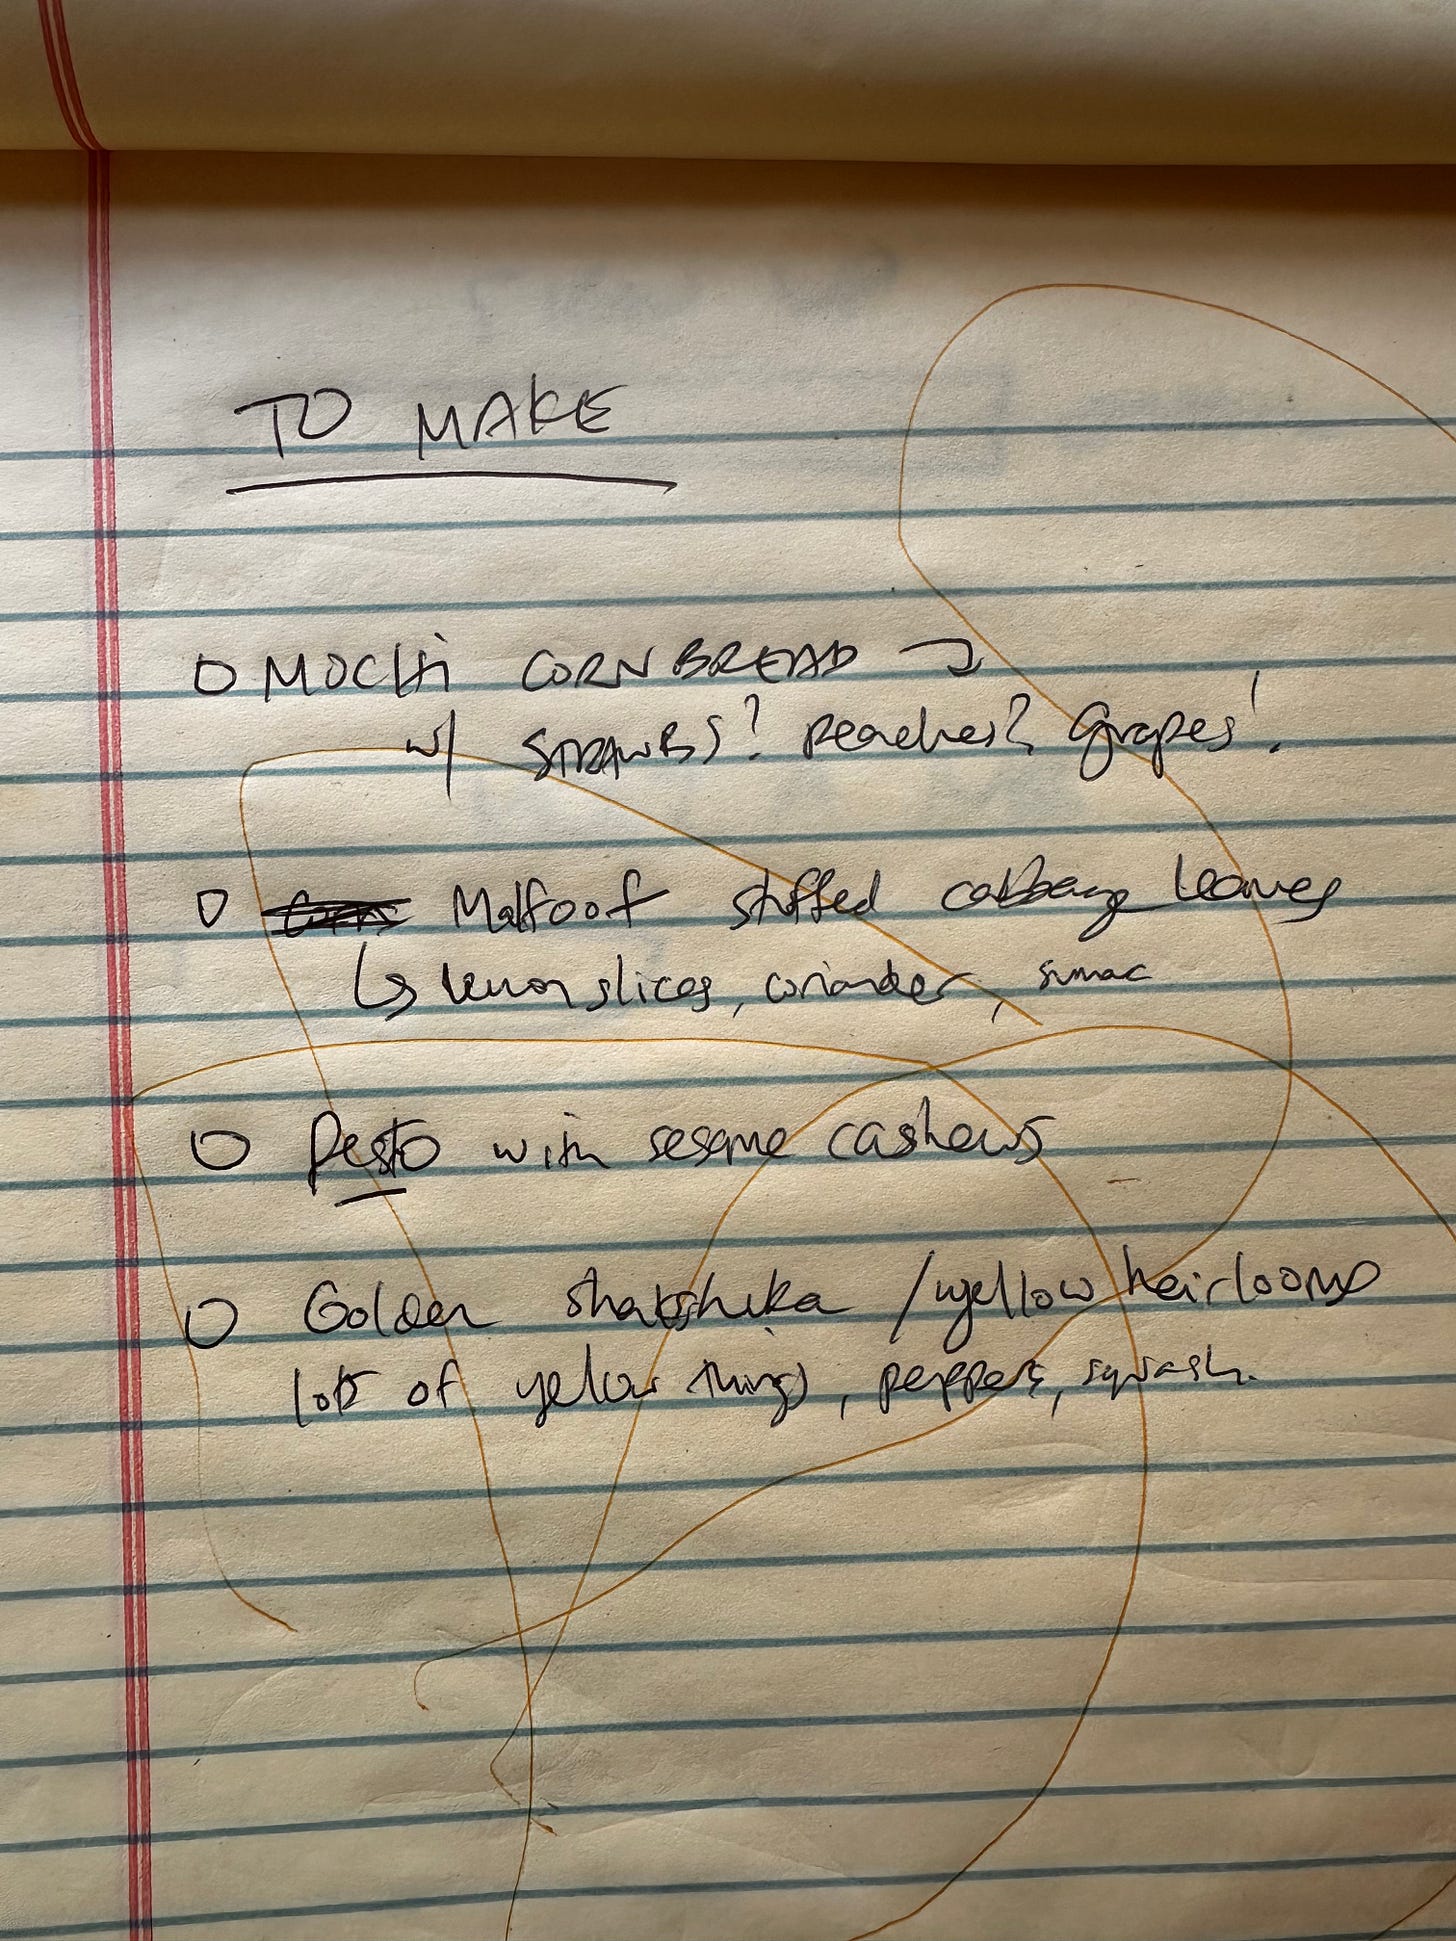 TO MAKE
MOCHi CORNBREAD →
w/ STRAWBS? peaches? Grapes!
Malfoof stuffed cabbage leaves
↳ lemon slices, coriander, sumac
Pesto with sesame cashews
Golden shakshuka / yellow heirlooms
lots of yellow things, peppers, squash.